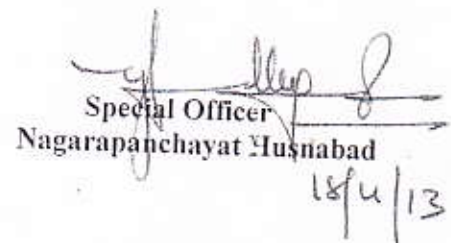 Special Officer
Nagarapanchayat Husnabad
18/4/13